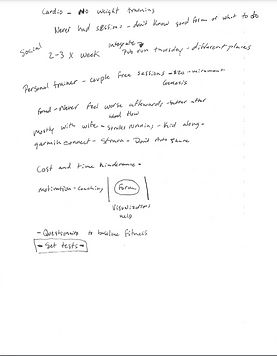 Cardio - No weight training
Never had sessions - don't know good form or what to do
Social
2-3 x week
Integrate
Pub run Thursday - different places
Personal trainer - couple free sessions - $20 -
Genesis
Never feel worse afterwards - better after
mostly with wife - stroller running - kid along -
garmin connect - Strava - Don't share
Cost and time hinderance -
motivation - coaching
Form
Visualizations
help
- Questionaire to baseline fitness
- Set tests -